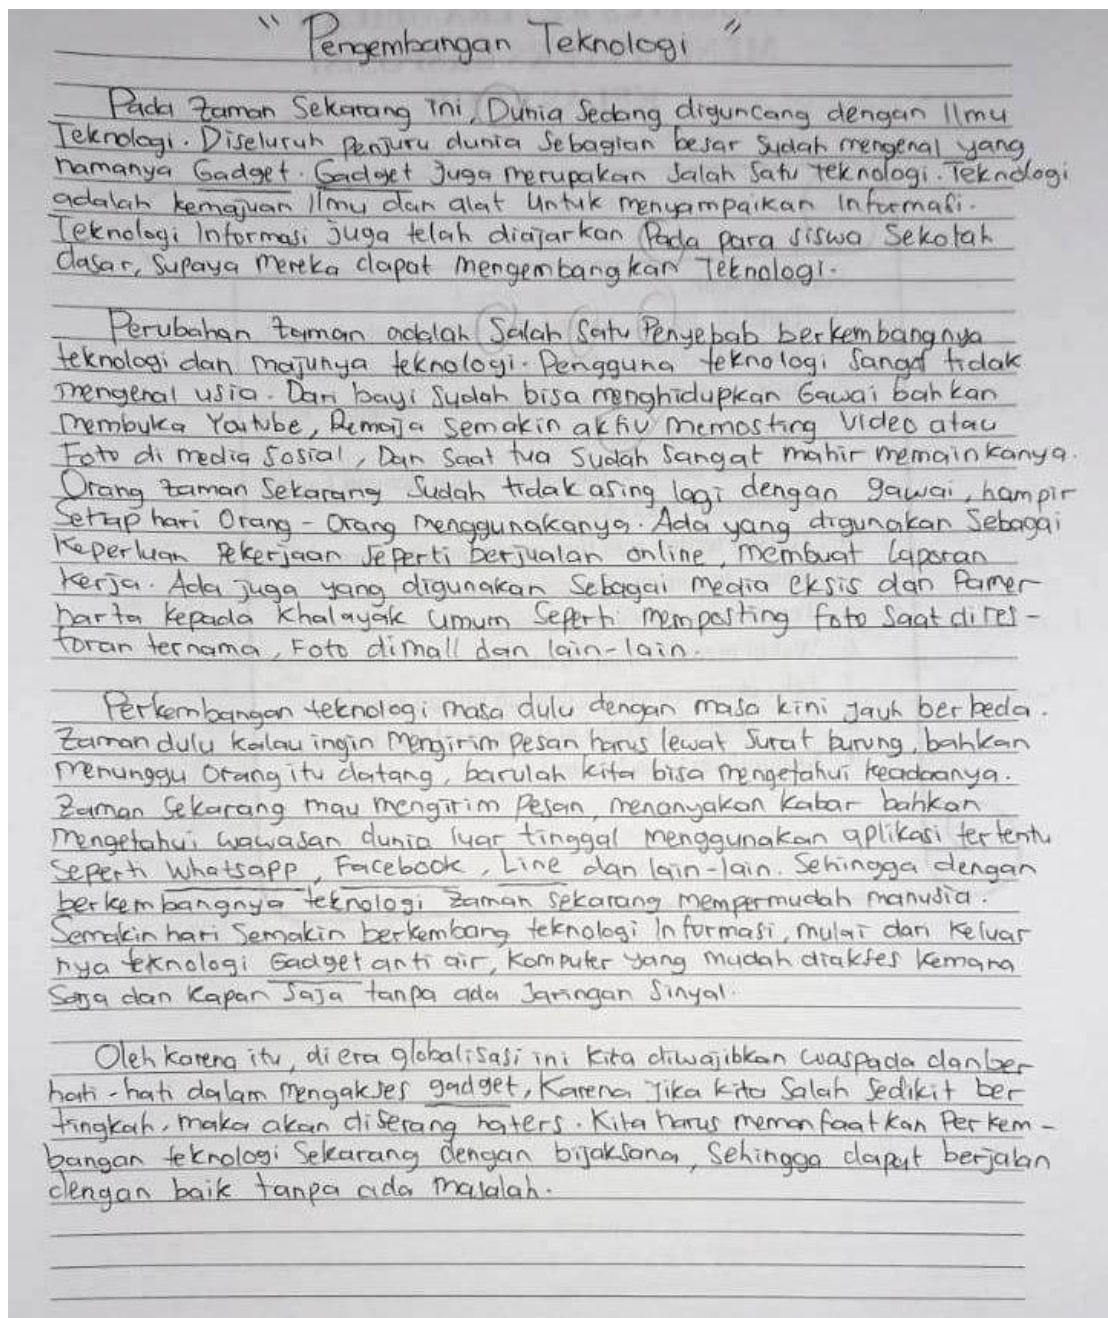 " Pengembangan Teknologi "
Pada Zaman Sekarang ini, Dunia Sedang diguncang dengan Ilmu
Teknologi. Diseluruh Penjuru dunia Sebagian besar Sudah mengenal yang
namanya Gadget. Gadget Juga merupakan Salah Satu Teknologi. Teknologi
adalah kemajuan Ilmu dan alat Untuk menyampaikan Informasi.
Teknologi Informasi juga telah diajarkan Pada para siswa Sekolah
dasar, Supaya mereka dapat mengembangkan Teknologi.
Perubahan zaman adalah Salah Satu Penyebab berkembangnya
teknologi dan majunya teknologi. Pengguna teknologi Sangat tidak
mengenal usia. Dari bayi Sudah bisa menghidupkan Gawai bahkan
membuka Youtube, Remaja Semakin aktiv memosting Video atau
Foto di media Sosial, Dan Saat tua Sudah Sangat mahir memainkanya.
Orang zaman Sekarang Sudah tidak asing lagi dengan gawai, hampir
Setiap hari Orang - Orang menggunakanya. Ada yang digunakan Sebagai
Keperluan Pekerjaan Seperti berjualan online, membuat Laporan
Kerja. Ada juga yang digunakan Sebagai media eksis dan Pamer
harta kepada Khalayak umum Seperti memposting foto Saat dires-
toran ternama, Foto dimall dan lain-lain.
Perkembangan teknologi masa dulu dengan masa kini Jauh berbeda.
Zaman dulu Kalau ingin Mengirim Pesan harus lewat Surat burung, bahkan
menunggu Orang itu datang, barulah kita bisa mengetahui keadaanya.
Zaman Sekarang mau mengirim Pesan, menanyakan Kabar bahkan
mengetahui wawasan dunia luar tinggal menggunakan aplikasi tertentu
Seperti Whatsapp, Facebook, Line dan lain-lain. Sehingga dengan
berkembangnya teknologi Zaman sekarang mempermudah manusia.
Semakin hari Semakin berkembang teknologi Informasi, mulai dari Keluar
nya teknologi Gadget anti air, Komputer yang mudah diakses Kemana
Saja dan Kapan Saja tanpa ada Jaringan Sinyal.
Oleh karena itu, di era globalisasi ini Kita diwajibkan waspada dan ber
hati - hati dalam mengakses gadget, Karena Jika Kita Salah Sedikit ber
tingkah, maka akan diserang haters. Kita harus memanfaatkan Perkem-
bangan teknologi Sekarang dengan bijaksana, Sehingga dapat berjalan
dengan baik tanpa ada masalah.